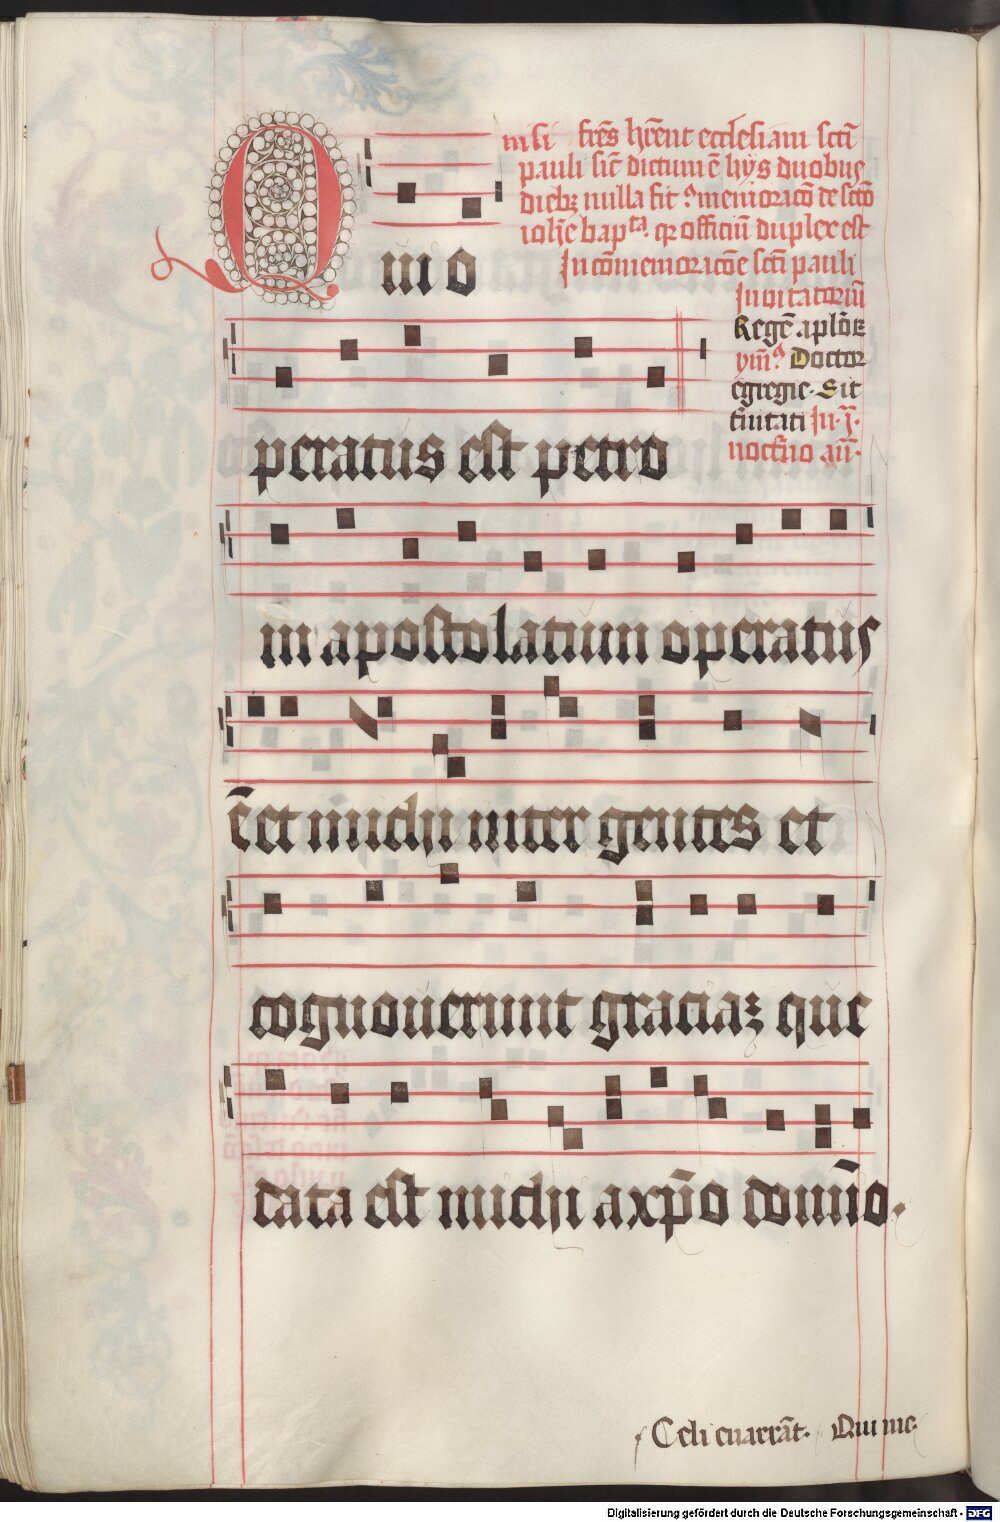 nisi fr̄es hr̄ent ecclesiam sc̄ti
pauli sic̄ dictum ē hÿs duobus
diebꝫ nulla fit memoracō de sc̄to
ioh̄e bapt̄a. qꝛ officiū duplex est
In cōmemoracōe sc̄ti pauli
Inuitatoriū
Qui o
Regē aplōꝝ
ym̄ Doctor
egregie. Sit
t̄initati In .j.
noct̄no an̄.
peratus est petro
in apostolatum operatus
ē et michi inter gentes et
cognouerunt graciaꝫ que
data est michi a xp̄o domīo.
Celi enarrāt. Qui me.
Digitalisierung gefördert durch die Deutsche Forschungsgemeinschaft - DFG